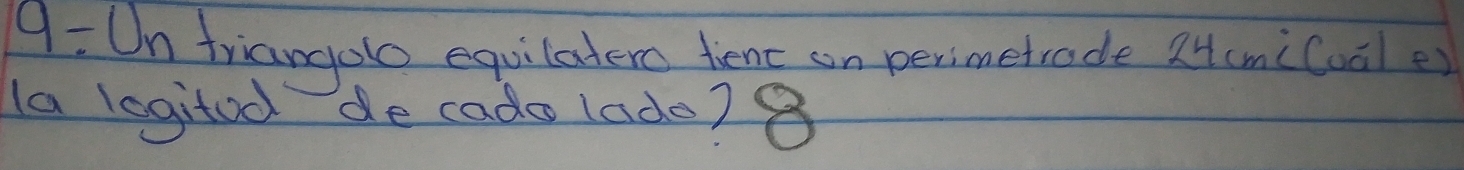 9-Un triangolo equilatero tient un perimetrode 24cm¿Coál es
la logitud de cado lado? 8